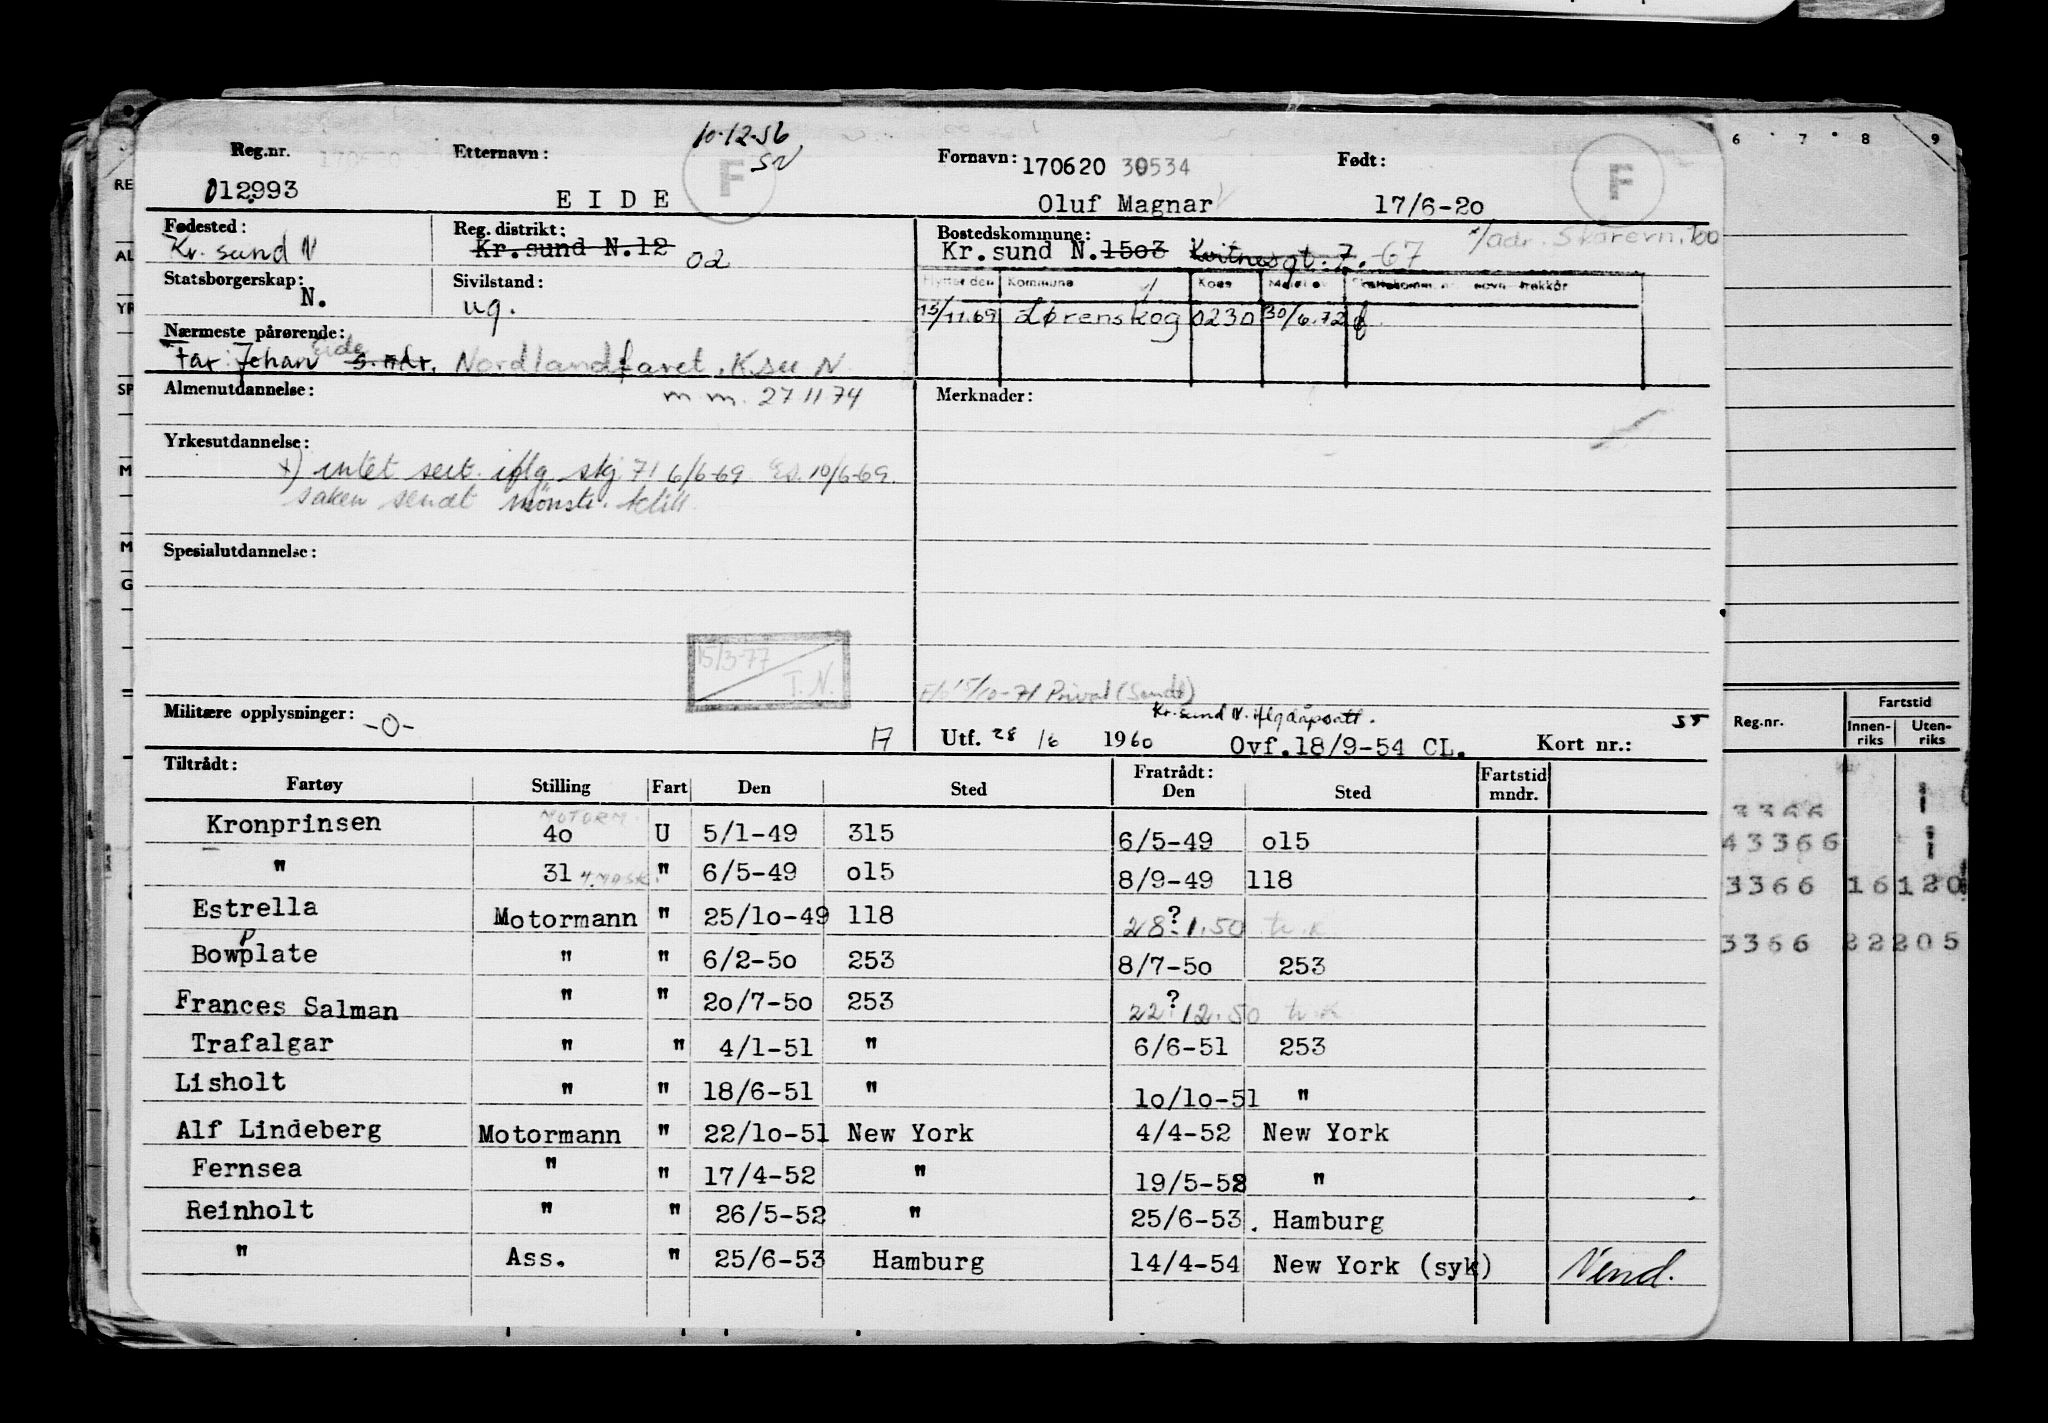 10-12-56
SV
Reg.nr. Etternavn: F Fornavn: 170620 30534 Født: F
012993 EIDE Oluf Magnar 17/6-20
Fødested: Reg. distrikt: Bostedskommune: adr. Skarevn. 100
Kr. sund N Kr.sund N.12 02 Kr.sund N. 1503 Kvitnesgt. 7. 67
Statsborgerskap: N. Sivilstand: ug.
Flyttet den Kommune Kode Meldt
15/11.69 Lørenskog 0230 30/6.72
Nærmeste pårørende:
Eide
far: Johan s. adr. Nordlandfaret, Ksu N
Almenutdannelse: m.m. 27 11 74 Merknader:
Yrkesutdannelse:
x) intet sert. iflg. skj 71 6/6-69 Es. 10/6-69.
saken sendt mønstr.
Spesialutdannelse:
15/3-77
T.N.
15/10-71 Privat (Sendt)
Kr.sund N. iflg dåpsatt.
Militære opplysninger: -0- Utf. 28/6 1960 Ovf.18/9-54 CL. Kort nr.:
Tiltrådt: Fratrådt:
Fartøy Stilling Fart Den Sted Den Sted Fartstid mndr.
MOTORM.
Kronprinsen 40 U 5/1-49 315 6/5-49 o15
" 31 " 6/5-49 o15 8/9-49 118
Estrella Motormann " 25/10-49 118 ? 28.1.50
Bowplate " " 6/2-50 253 8/7-50 253
Frances Salman " " 20/7-50 253 ? 22.12.50
Trafalgar " " 4/1-51 " 6/6-51 253
Lisholt " " 18/6-51 " 10/10-51 "
Alf Lindeberg Motormann " 22/10-51 New York 4/4-52 New York
Fernsea " " 17/4-52 " 19/5-52 "
Reinholt " " 26/5-52 " 25/6-53. Hamburg
" Ass. " 25/6-53 Hamburg 14/4-54 New York (syk) Vend.
6 7 8 9
RE
AL
YR
SP
M
M
G
Reg.nr. Fartstid
Innen-riks Uten-riks
3366 1
43366 1
3366 16 120
3366 22 205